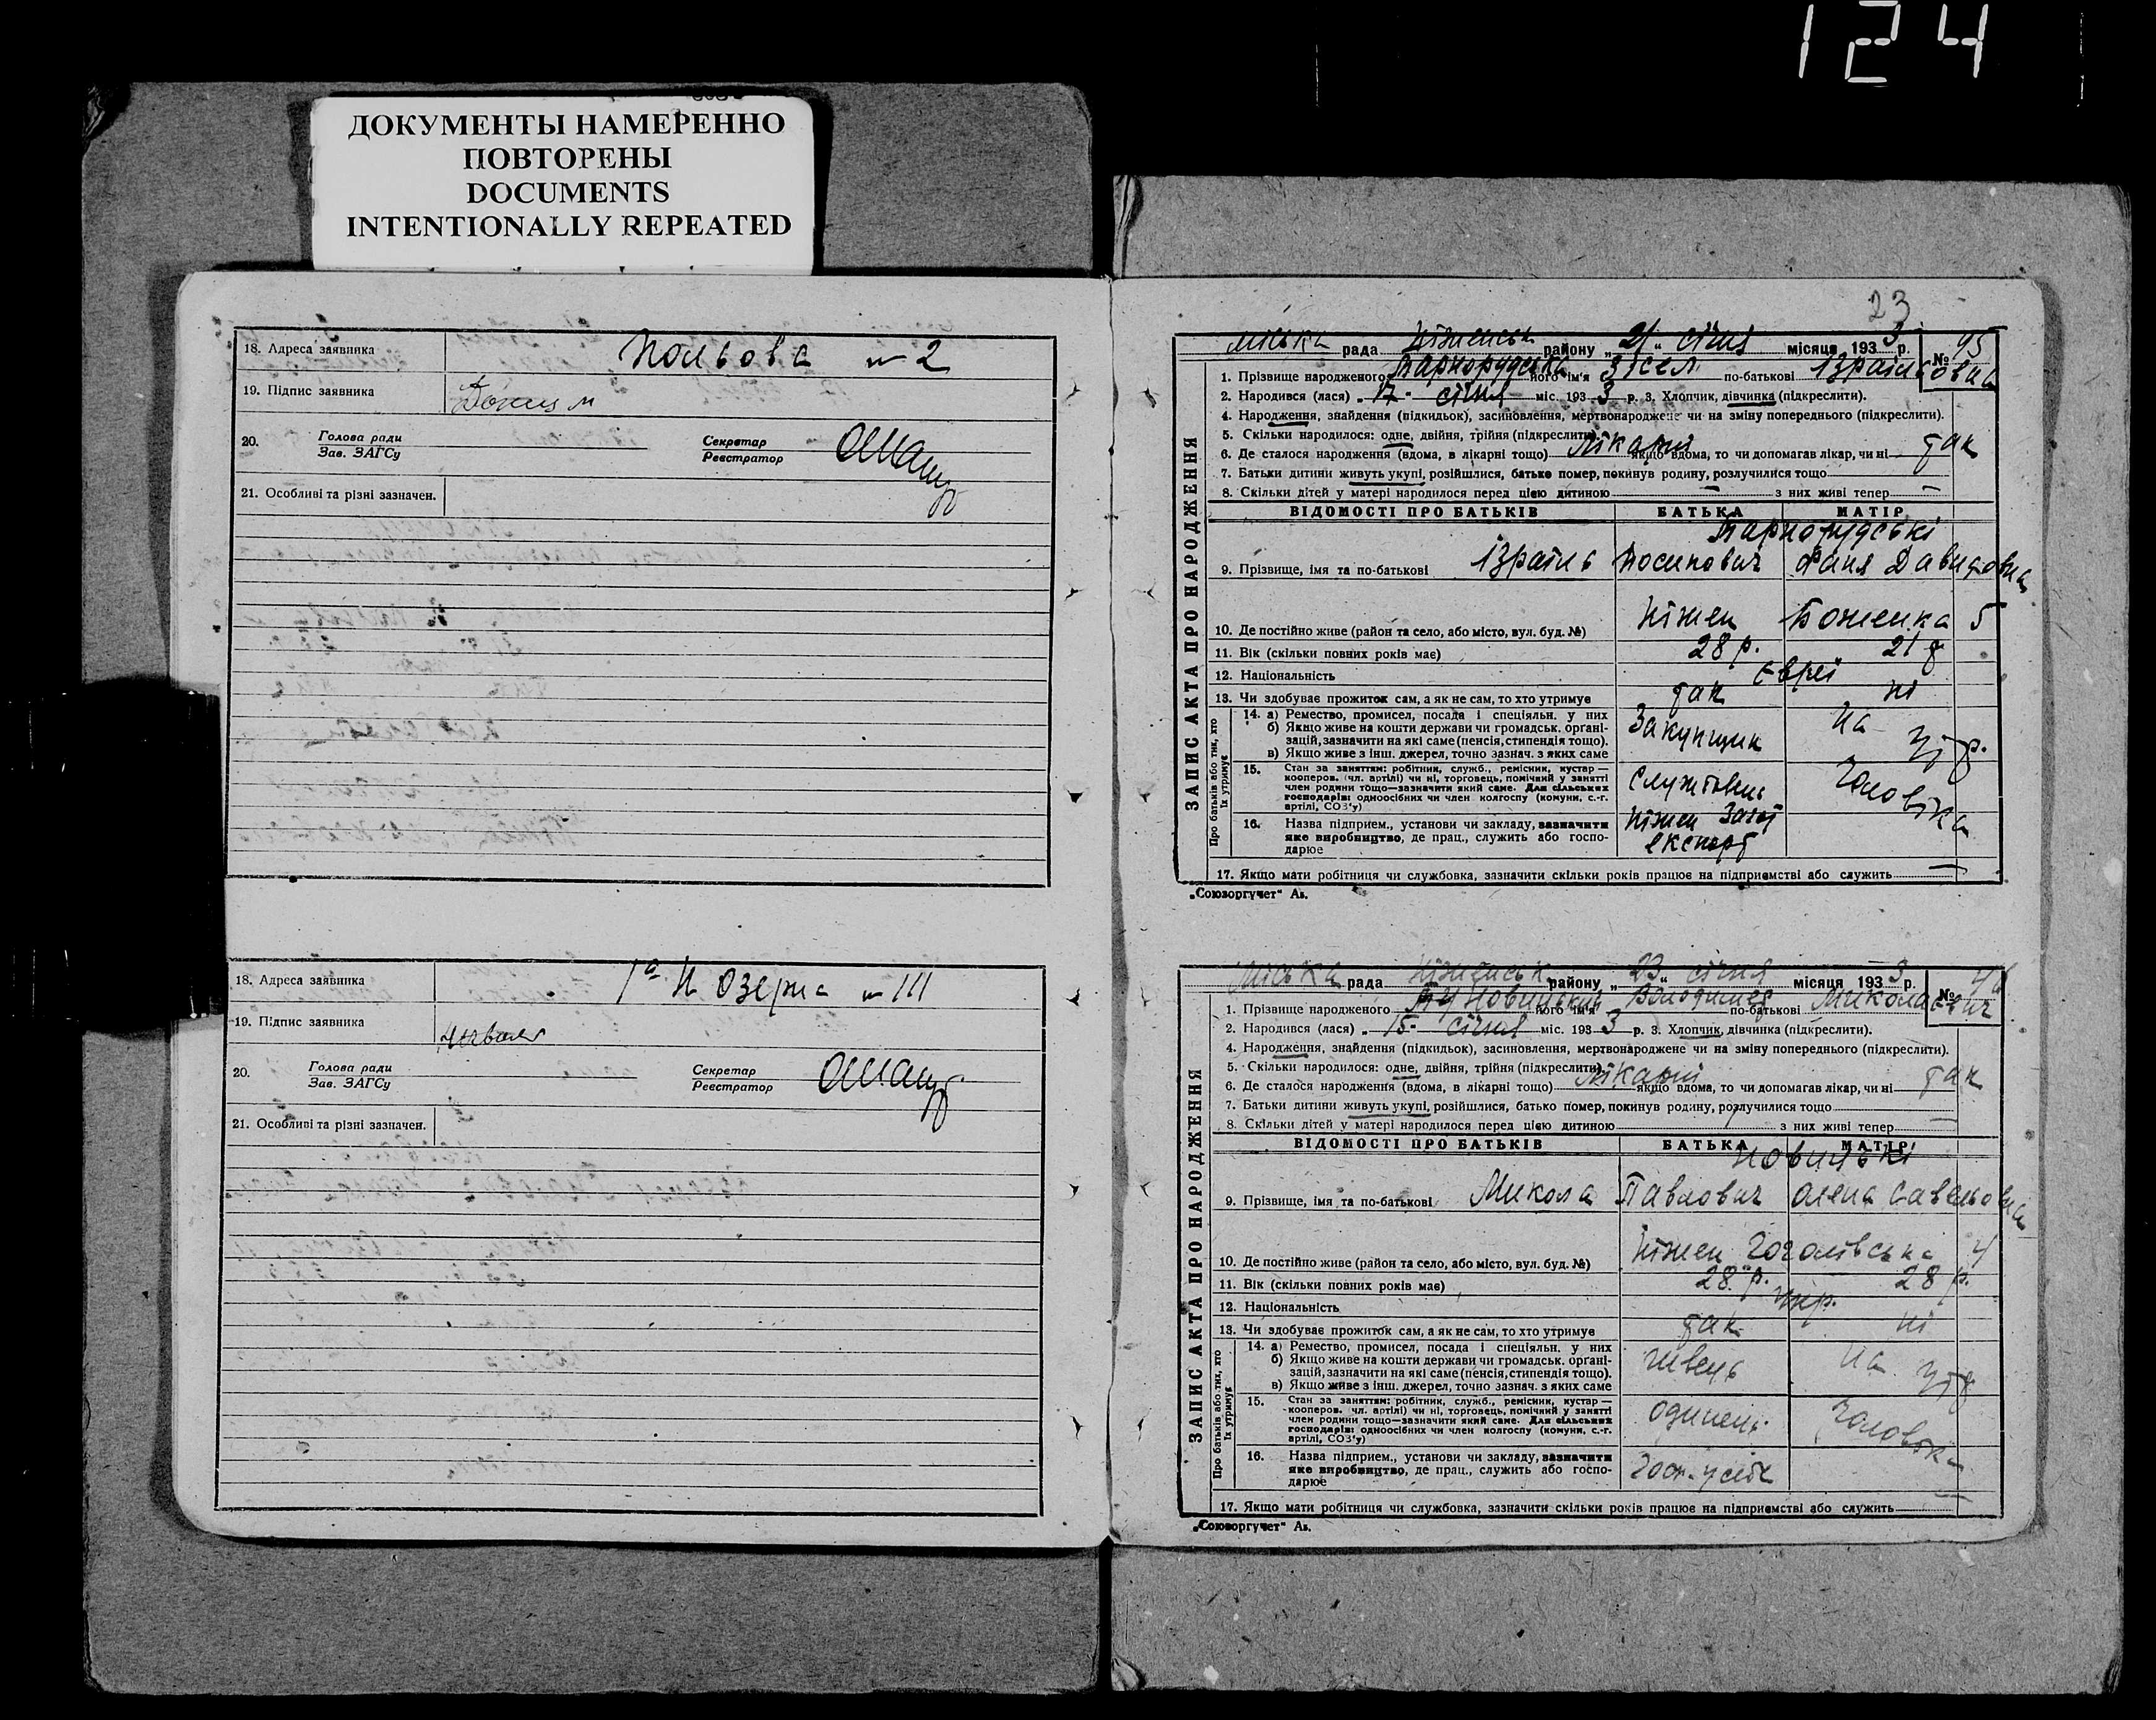 124
ДОКУМЕНТЫ НАМЕРЕННО
ПОВТОРЕНЫ
DOCUMENTS
INTENTIONALLY REPEATED
18. Адреса заявника Польова № 2
19. Підпис заявника
20. Голова ради
Зав. ЗАГСу
Секретар
Реєстратор
21. Особливі та різні зазначен.
18. Адреса заявника 1ª Озерна № 111
19. Підпис заявника
20. Голова ради
Зав. ЗАГСу
Секретар
Реєстратор
21. Особливі та різні зазначен.
23
ЗАПИС АКТА ПРО НАРОДЖЕННЯ
міська рада Ніженськ району „21“ січня місяця 1933 р. № 45
1. Прізвище народженого Тарнорудська його ім'я по-батькові Ізраїлевна
2. Народився (лася) „17“ січня міс. 1933 р. 3. Хлопчик, дівчинка (підкреслити).
4. Народження, знайдення (підкидьок), засиновлення, мертвонароджене чи на зміну попереднього (підкреслити).
5. Скільки народилося: одне, двійня, трійня (підкреслити)
6. Де сталося народження (вдома, в лікарні тощо) лікарні якщо вдома, то чи допомагав лікар, чи ні так
7. Батьки дитини живуть укупі, розійшлися, батько помер, покинув родину, розлучилися тощо
8. Скільки дітей у матері народилося перед цією дитиною — з них живі тепер —
ВІДОМОСТІ ПРО БАТЬКІВ БАТЬКА МАТІР
Тарнорудські
9. Прізвище, імя та по-батькові Ізраїль Йосипович Фаня Давидовна
10. Де постійно живе (район та село, або місто, вул. буд. №) Ніжен Боженка 5
11. Вік (скільки повних років має) 28 р. 21 р
12. Національність Євреї
13. Чи здобуває прожиток сам, а як не сам, то хто утримує так ні
Про батьків або тих, хто їх утримує
14. а) Ремество, промисел, посада і спеціяльн. у них
б) Якщо живе на кошти держави чи громадськ. орґані-
зацій, зазначити на які саме (пенсія, стипендія тощо).
в) Якщо живе з інш. джерел, точно зазнач. з яких саме
Закупщик На утр.
15. Стан за заняттям: робітник, служб., ремісник, кустар —
кооперов. (чл. артілі) чи ні, торговець, помічний у занятті
член родини тощо—зазначити який саме. Для сільських
господарів: одноосібних чи член колгоспу (комуни, с.-г.
артілі, СОЗ'у)
Службовець чоловіка
16. Назва підприєм., установи чи закладу, зазначити
яке виробництво, де прац., служить або госпо-
дарює
Ніжен експорт
17. Якщо мати робітниця чи службовка, зазначити скільки років працює на підприємстві або служить —
„Союзоргучет“ Ав.
ЗАПИС АКТА ПРО НАРОДЖЕННЯ
міська рада Ніженськ району „23“ січня місяця 1933 р. № 46
1. Прізвище народженого Новинський його ім'я Володимер по-батькові Миколаєвич
2. Народився (лася) „15“ січня міс. 1933 р. 3. Хлопчик, дівчинка (підкреслити).
4. Народження, знайдення (підкидьок), засиновлення, мертвонароджене чи на зміну попереднього (підкреслити).
5. Скільки народилося: одне, двійня, трійня (підкреслити)
6. Де сталося народження (вдома, в лікарні тощо) лікарні якщо вдома, то чи допомагав лікар, чи ні так
7. Батьки дитини живуть укупі, розійшлися, батько помер, покинув родину, розлучилися тощо
8. Скільки дітей у матері народилося перед цією дитиною з них живі тепер
ВІДОМОСТІ ПРО БАТЬКІВ БАТЬКА МАТІР
9. Прізвище, імя та по-батькові Микола Павлович Олена Савельовна
10. Де постійно живе (район та село, або місто, вул. буд. №) Ніжен Гоголівська 4
11. Вік (скільки повних років має) 28 р. 28 р.
12. Національність укр.
13. Чи здобуває прожиток сам, а як не сам, то хто утримує так ні
Про батьків або тих, хто їх утримує
14. а) Ремество, промисел, посада і спеціяльн. у них
б) Якщо живе на кошти держави чи громадськ. орґані-
зацій, зазначити на які саме (пенсія, стипендія тощо).
в) Якщо живе з інш. джерел, точно зазнач. з яких саме
На утр
15. Стан за заняттям: робітник, служб., ремісник, кустар —
кооперов. чл. артілі) чи ні, торговець, помічний у занятті
член родини тощо—зазначити який саме. Для сільських
господарів: одноосібних чи член колгоспу (комуни, с.-г.
артілі, СОЗ'у)
чоловіка
16. Назва підприєм., установи чи закладу, зазначити
яке виробництво, де прац., служить або госпо-
дарює
17. Якщо мати робітниця чи службовка, зазначити скільки років працює на підприємстві або служить
„Союзоргучет“ Ав.